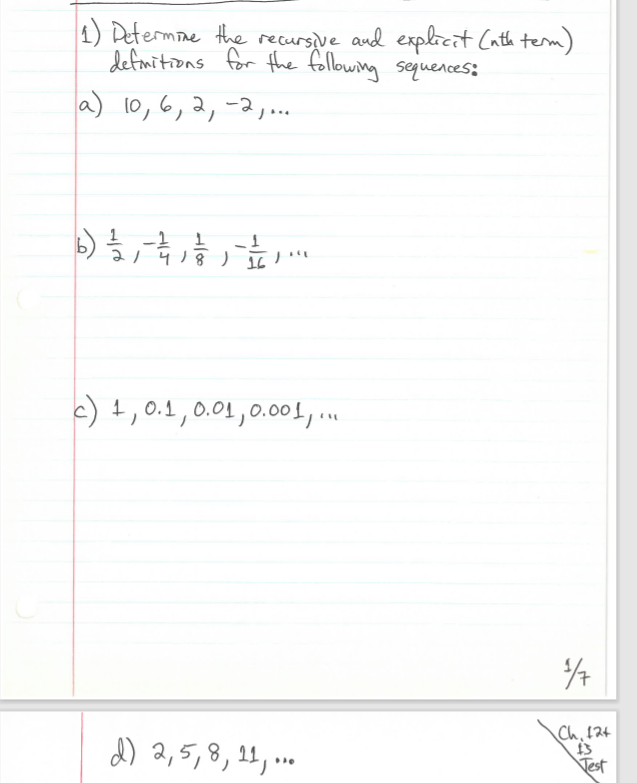 1) Determine the recursive and explicit (nth term)
definitions for the following sequences:
a) 10, 6, 2, -2, ...
b) 1/2, -1/4, 1/8, -1/16, ...
c) 1, 0.1, 0.01, 0.001, ...
1/7
Ch. 12+
13
Test
d) 2, 5, 8, 11, ...